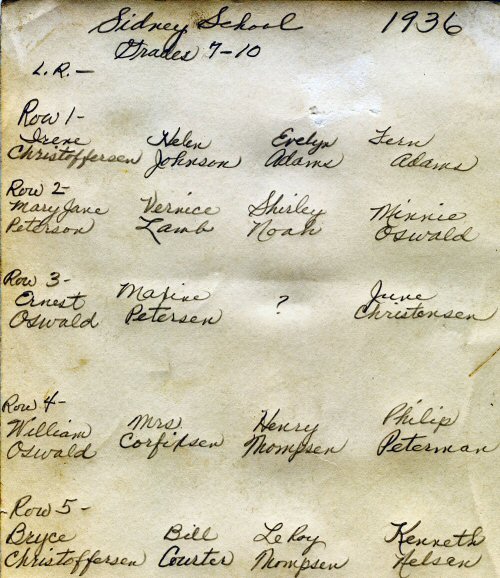 Sidney School 1936
Grades 7-10
L.R. -
Row 1-
Irene Helen Evelyn Fern
Christoffersen Johnson Adams Adams
Row 2-
Mary Jane Vernice Shirley Minnie
Peterson Lamb Noah Oswald
Row 3-
Ernest Maxine ? June
Oswald Petersen Christensen
Row 4-
William Mrs Henry Philip
Oswald Corfixsen Thompsen Peterman
Row 5-
Bryce Bill LeRoy Kenneth
Christoffersen Courter Thompsen Nelsen